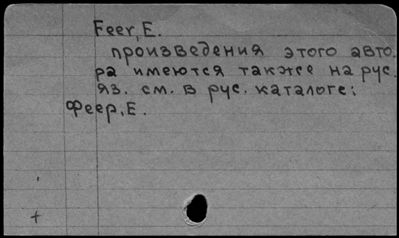 Feer, E.
произведения этого авто-
ра имеются также на рус.
яз. см. в рус. каталоге:
Феер, Е.
+